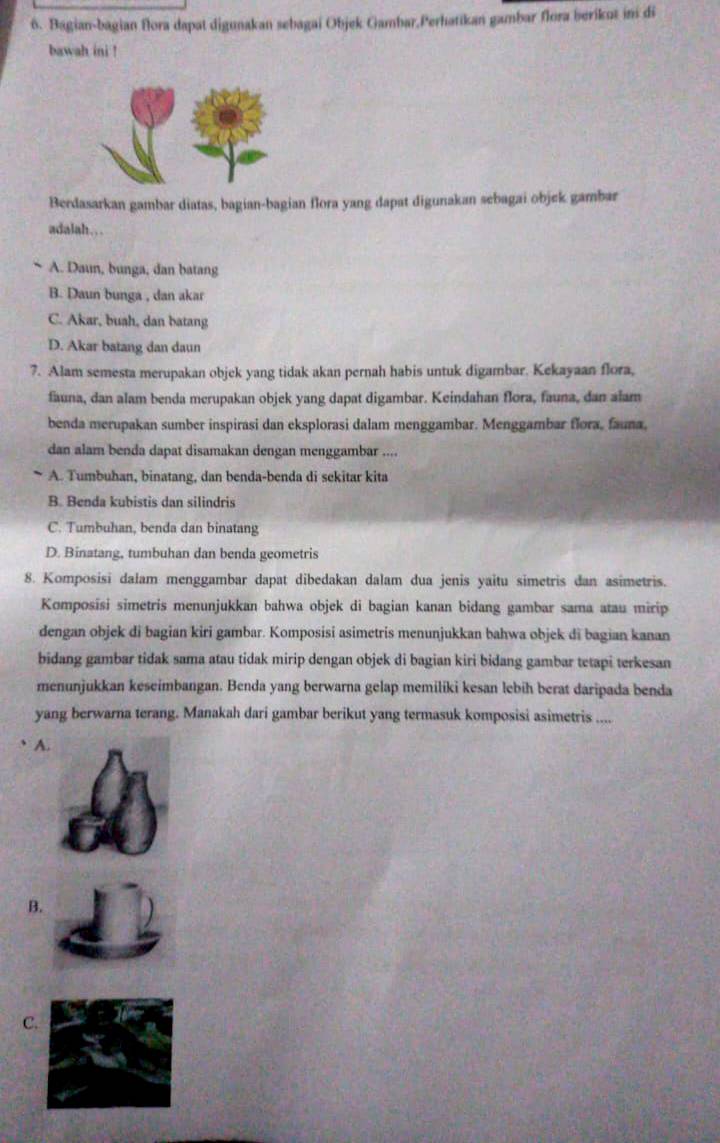 6. Bagian-bagian flora dapat digunakan sebagai Objek Gambar,Perhatikan gambar flora berikut ini di
bawah ini !
Berdasarkan gambar diatas, bagian-bagian flora yang dapat digunakan sebagai objek gambar
adalah…
A. Daun, bunga, dan batang
B. Daun bunga , dan akar
C. Akar, buah, dan batang
D. Akar batang dan daun
7. Alam semesta merupakan objek yang tidak akan pernah habis untuk digambar. Kekayaan flora,
fauna, dan alam benda merupakan objek yang dapat digambar. Keindahan flora, fauna, dan alam
benda merupakan sumber inspirasi dan eksplorasi dalam menggambar. Menggambar flora, fauna,
dan alam benda dapat disamakan dengan menggambar ....
A. Tumbuhan, binatang, dan benda-benda di sekitar kita
B. Benda kubistis dan silindris
C. Tumbuhan, benda dan binatang
D. Binatang, tumbuhan dan benda geometris
8. Komposisi dalam menggambar dapat dibedakan dalam dua jenis yaitu simetris dan asimetris.
Komposisi simetris menunjukkan bahwa objek di bagian kanan bidang gambar sama atau mirip
dengan objek di bagian kiri gambar. Komposisi asimetris menunjukkan bahwa objek di bagian kanan
bidang gambar tidak sama atau tidak mirip dengan objek di bagian kiri bidang gambar tetapi terkesan
menunjukkan keseimbangan. Benda yang berwarna gelap memiliki kesan lebih berat daripada benda
yang berwarna terang. Manakah dari gambar berikut yang termasuk komposisi asimetris ....
A.
B.
C.